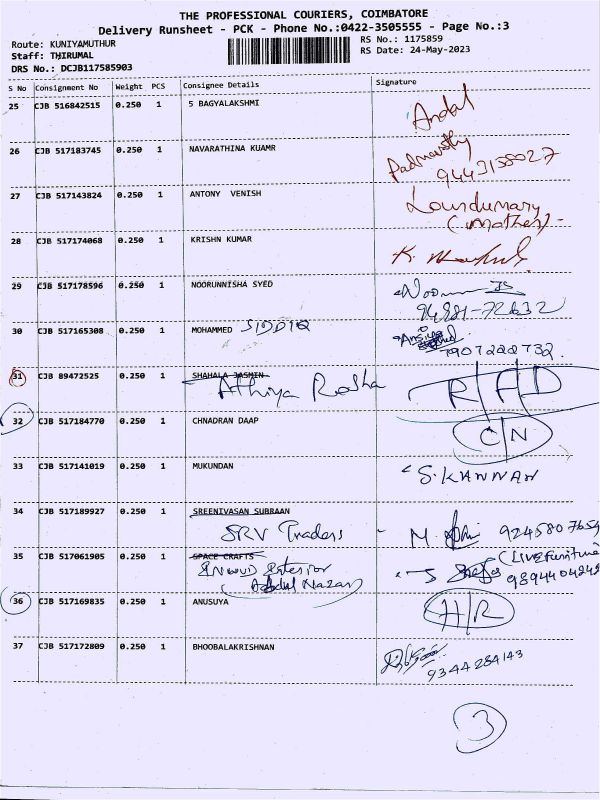 THE PROFESSIONAL COURIERS, COIMBATORE
Delivery Runsheet - PCK - Phone No.:0422-3505555 - Page No.:3
Route: KUNIYAMUTHUR
RS No.: 1175859
Staff: THIRUMAL
RS Date: 24-May-2023
DRS No.: DCJB117585903
S No Consignment No Weight PCS Consignee Details Signature
25 CJB 516842515 0.250 1 S BAGYALAKSHMI Andal
26 CJB 517183745 0.250 1 NAVARATHINA KUAMR Padmavathy
9443158027
27 CJB 517143824 0.250 1 ANTONY VENISH Lourdumary
(mother)-
28 CJB 517174068 0.250 1 KRISHN KUMAR K.
29 CJB 517178596 0.250 1 NOORUNNISHA SYED Noor
94881-72632
30 CJB 517165308 0.250 1 MOHAMMED SIDDIQ
7907222732
31 CJB 89472525 0.250 1 SHAHALA JASMIN
Athiya Rosha R/AD
32 CJB 517184770 0.250 1 CHNADRAN DAAP C/N
33 CJB 517141019 0.250 1 MUKUNDAN S. KANNAN
34 CJB 517189927 0.250 1 SREENIVASAN SUBRAAN
SRV Traders - M. 9245807654
35 CJB 517061905 0.250 1 SPACE CRAFTS (Live Furniture)
Interior
Abdul Nazar 9894404249
36 CJB 517169835 0.250 1 ANUSUYA H/R
37 CJB 517172809 0.250 1 BHOOBALAKRISHNAN
9344284143
3